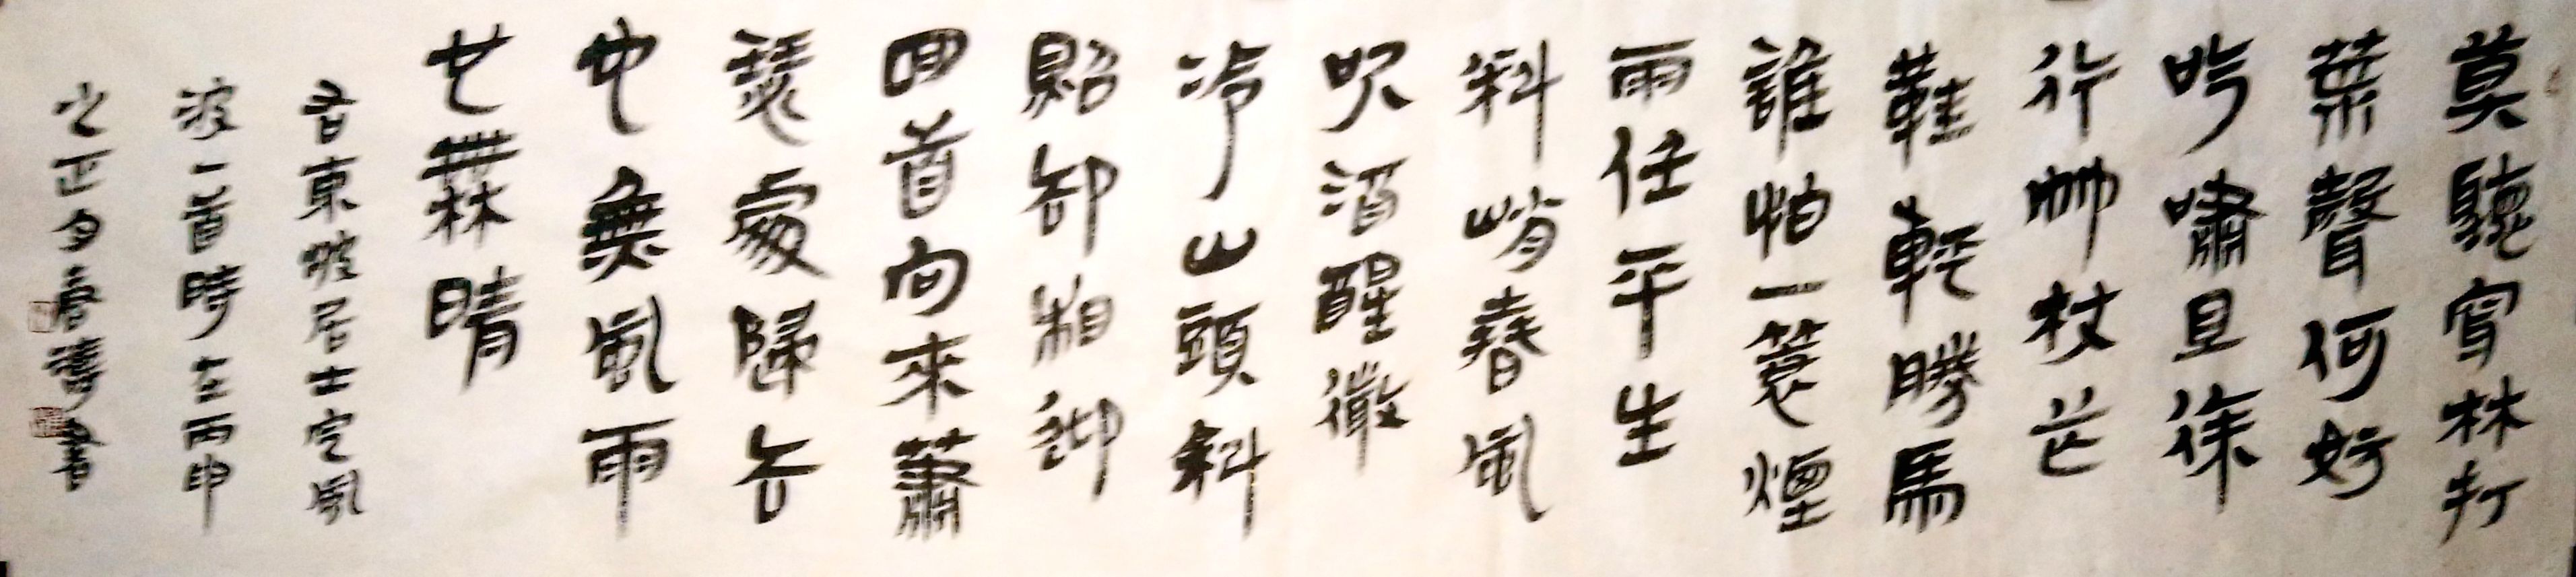 莫聽穿林打
葉聲何妨
吟嘯且徐
行竹杖芒
鞋輕勝馬
誰怕一蓑煙
雨任平生
料峭春風
吹酒醒微
冷山頭斜
照卻相迎
回首向來蕭
瑟處歸去
也無風雨
也無晴
右東坡居士定風
波一首時在丙申
之正月濤書